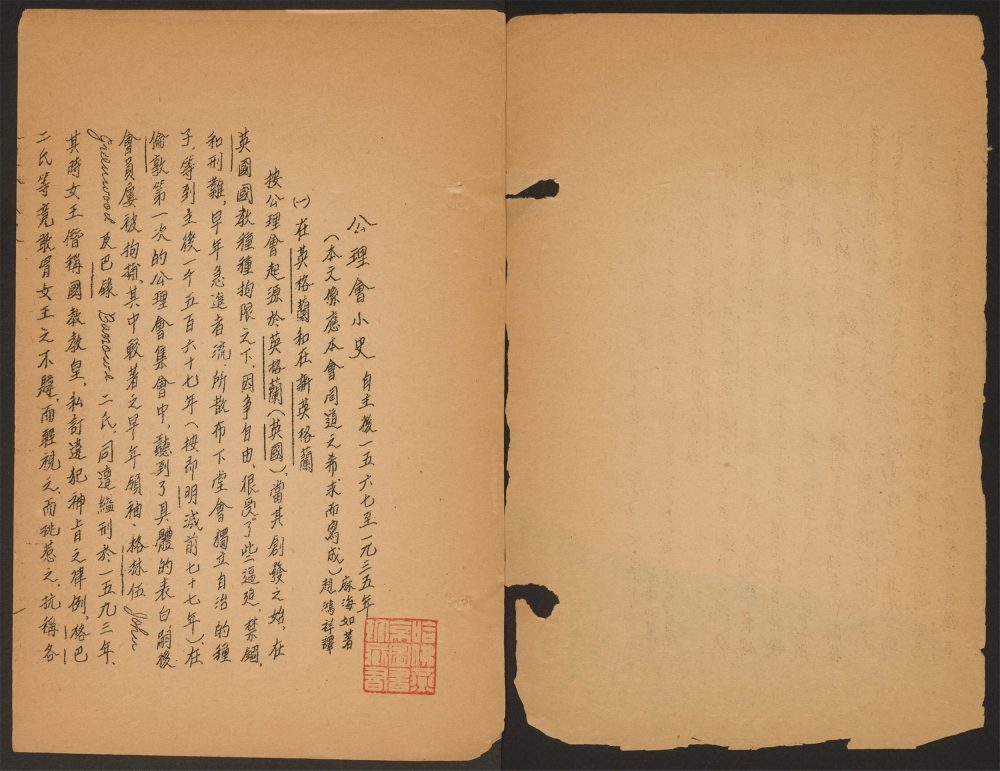 公理會小史 自主後一五六七至一九三五年
(本文係應本會同道之希求而寫成) 麻海如著
趙鴻祥譯
(一) 在英格蘭和在新英格蘭
按公理會起源於英格蘭(英國),當其創發之始,在
英國國教種種拘限之下,因爭自由,狠受了些逼廹,禁錮,
和刑難,早年急進者流,所散布下堂會獨立自治的種
子,等到主後一千五百六十七年(按即明減前七十七年),在
倫敦第一次的公理會集會中,聽到了具體的表白,嗣後
會員屢被拘捕,其中較著之早年領袖,格林伍 John
Greenwood 及巴錄 Barrowe 二氏,同遭縊刑於一五九三年,
其時女王僭稱國教教皇,私訂違犯神旨之律例,格巴
二氏等竟敢冒女王之不韙,而輕視之,而挑惹之,抗稱各
哈佛燕京圖書館珍藏